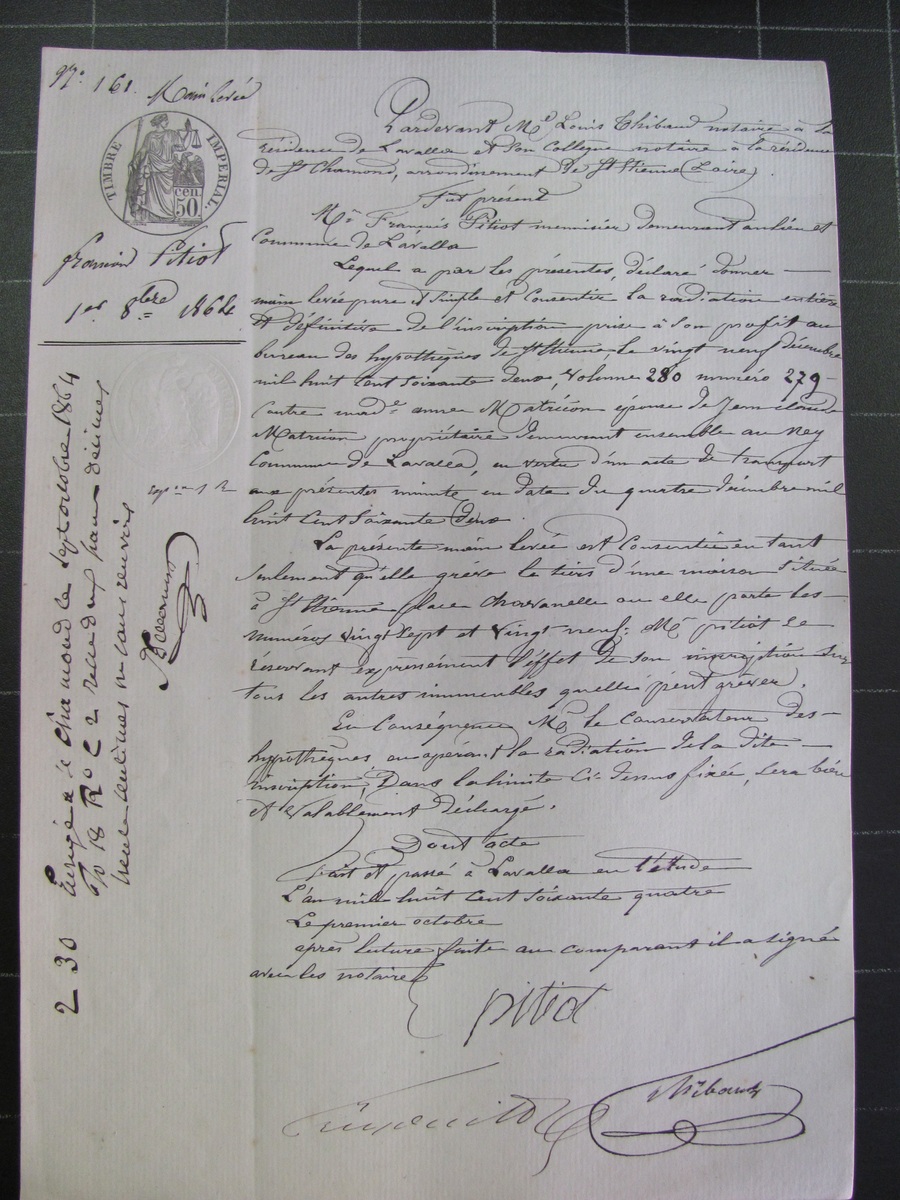 N° 161. Main levée
TIMBRE IMPERIAL.
50 cen
François Pitiot
1er 8bre 1864
Pardevant Me Louis Thibaud notaire à la
résidence de Lavalla et son Collègue notaire à la résidence
de St Chamond, arrondissement de St Etienne (Loire).
Fut présent
Mr François Pitiot menuisier demeurant au lieu et
Commune de Lavalla
Lequel a par les présentes, déclaré donner —
main levée pure et simple et Consentir la radiation entière
et définitive de l'inscription prise à son profit au
bureau des hypothèques de St Etienne, le vingt neuf décembre
mil huit cent soixante deux, Volume 280 numéro 279 -
Contre made anne Matricon épouse de Jean claude
Matricon propriétaire demeurant ensemble au Rey
Commune de Lavalla, en vertu d'un acte de transport
aux présentes minute, en date du quatre décembre mil
huit cent soixante deux.
La présente main levée est Consentie en tant
seulement qu'elle grève le tiers d'une maison située
à St Etienne place Chavanelle ou elle porte les
numéros vingt sept et vingt neuf. Mr pitiot se
réservant expressément l'effet de son inscription sur
tous les autres immeubles quelle peut grèver.
En Conséquence Mr le Conservateur des -
hypothèques en opérant la radiation de la dite —
inscription, Dans la limite Ci-dessus fixée, sera bien
et Valablement déchargé.
Dont acte
fait et passé à Lavalla en l'étude
L'an mil huit cent soixante quatre
Le premier octobre
après lecture faite au comparant il a signé
avec les notaires
pitiot
Thibaud
2 30 Enregé à St Chamond le sept octobre 1864
fo 18 Ro C 2 reçu deux francs décimes
trente centimes